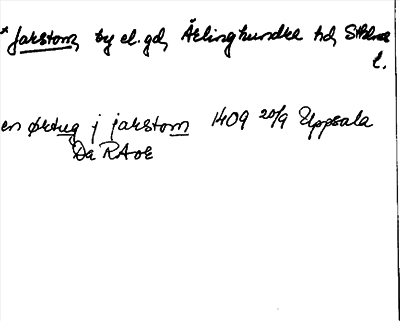 * Jakstom, by el. gd, Ärlinghundra hd, Sthlms
l.
en ørtug j jakstom 1409 20/9 Uppsala
Da RA oE